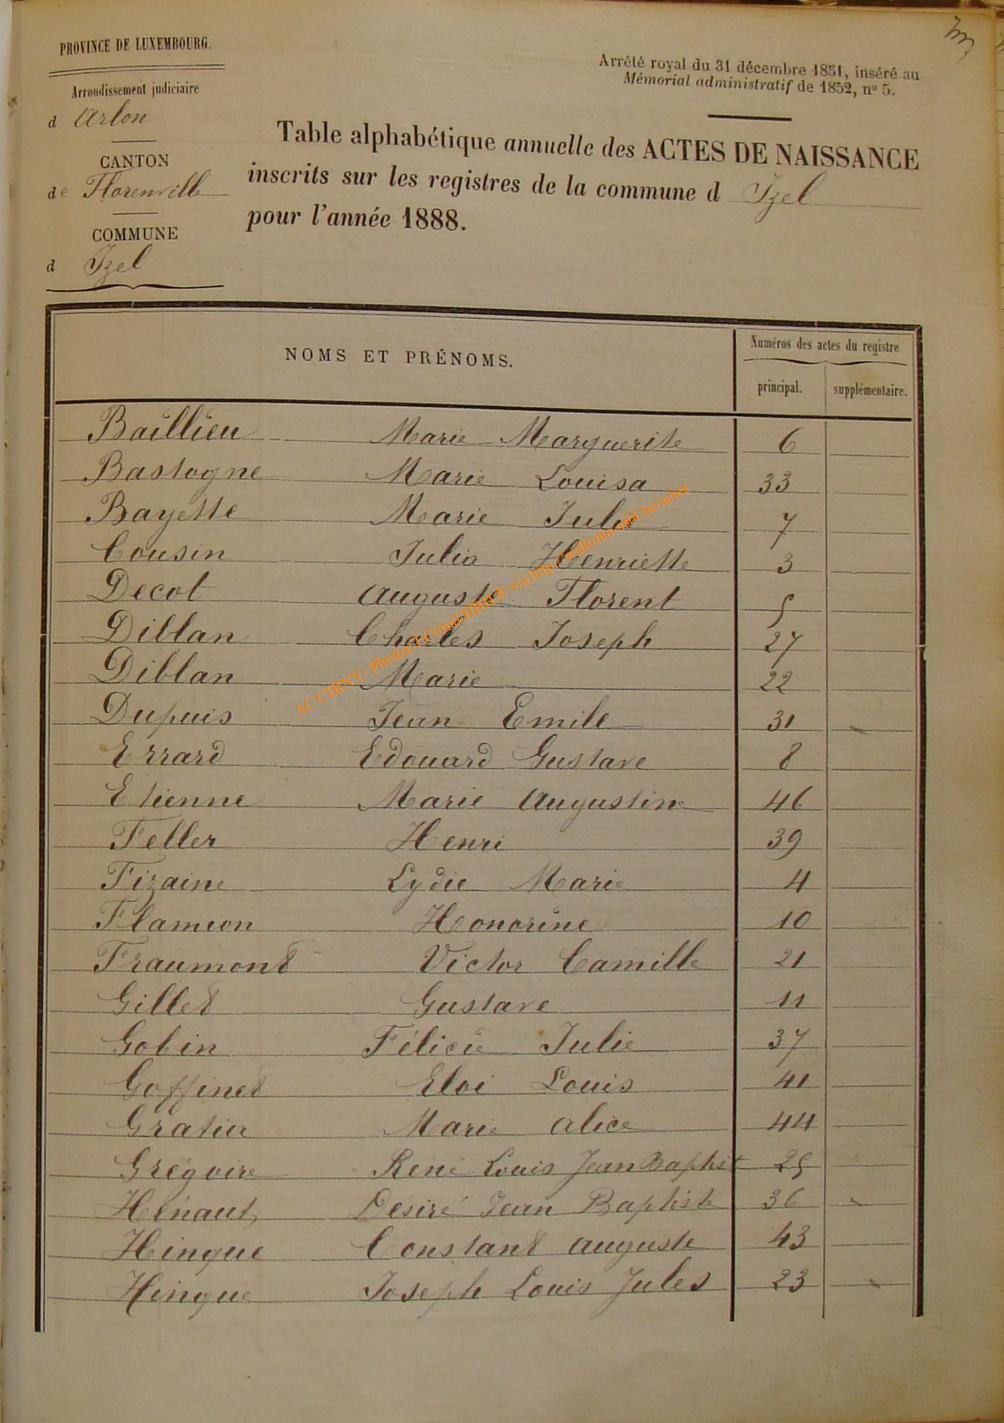 PROVINCE DE LUXEMBOURG.
Arrondissement judiciaire
d Arlon
CANTON
de Florenville
COMMUNE
d Izel
Arrêté royal du 31 décembre 1851, inséré au
Mémorial administratif de 1852, n° 5.
Table alphabétique annuelle des ACTES DE NAISSANCE
inscrits sur les registres de la commune d Izel
pour l'année 1888.
NOMS ET PRÉNOMS.
Numéros des actes du registre
principal. supplémentaire.
Baillieu Marie Marguerite 6
Bastogne Marie Louisa 33
Bayette Marie Julie 7
Cousin Julia Henriette 3
Decot Auguste Florent 5
Diblan Charles Joseph 27
Diblan Marie 22
Dupuis Jean Emile 31
Errard Edouard Gustave 8
Etienne Marie Augustine 46
Feller Henri 39
Fizaine Lydie Marie 4
Flamion Honorine 10
Fraumont Victor Camille 21
Gillet Gustave 11
Gobin Félicie Julie 37
Goffinet Eloi Louis 41
Gratia Marie Alice 44
Grégoire René Louis Jean Baptist 25
Hénaut Désiré Jean Baptiste 36
Hinque Constant Auguste 43
Hinque Joseph Louis Jules 23